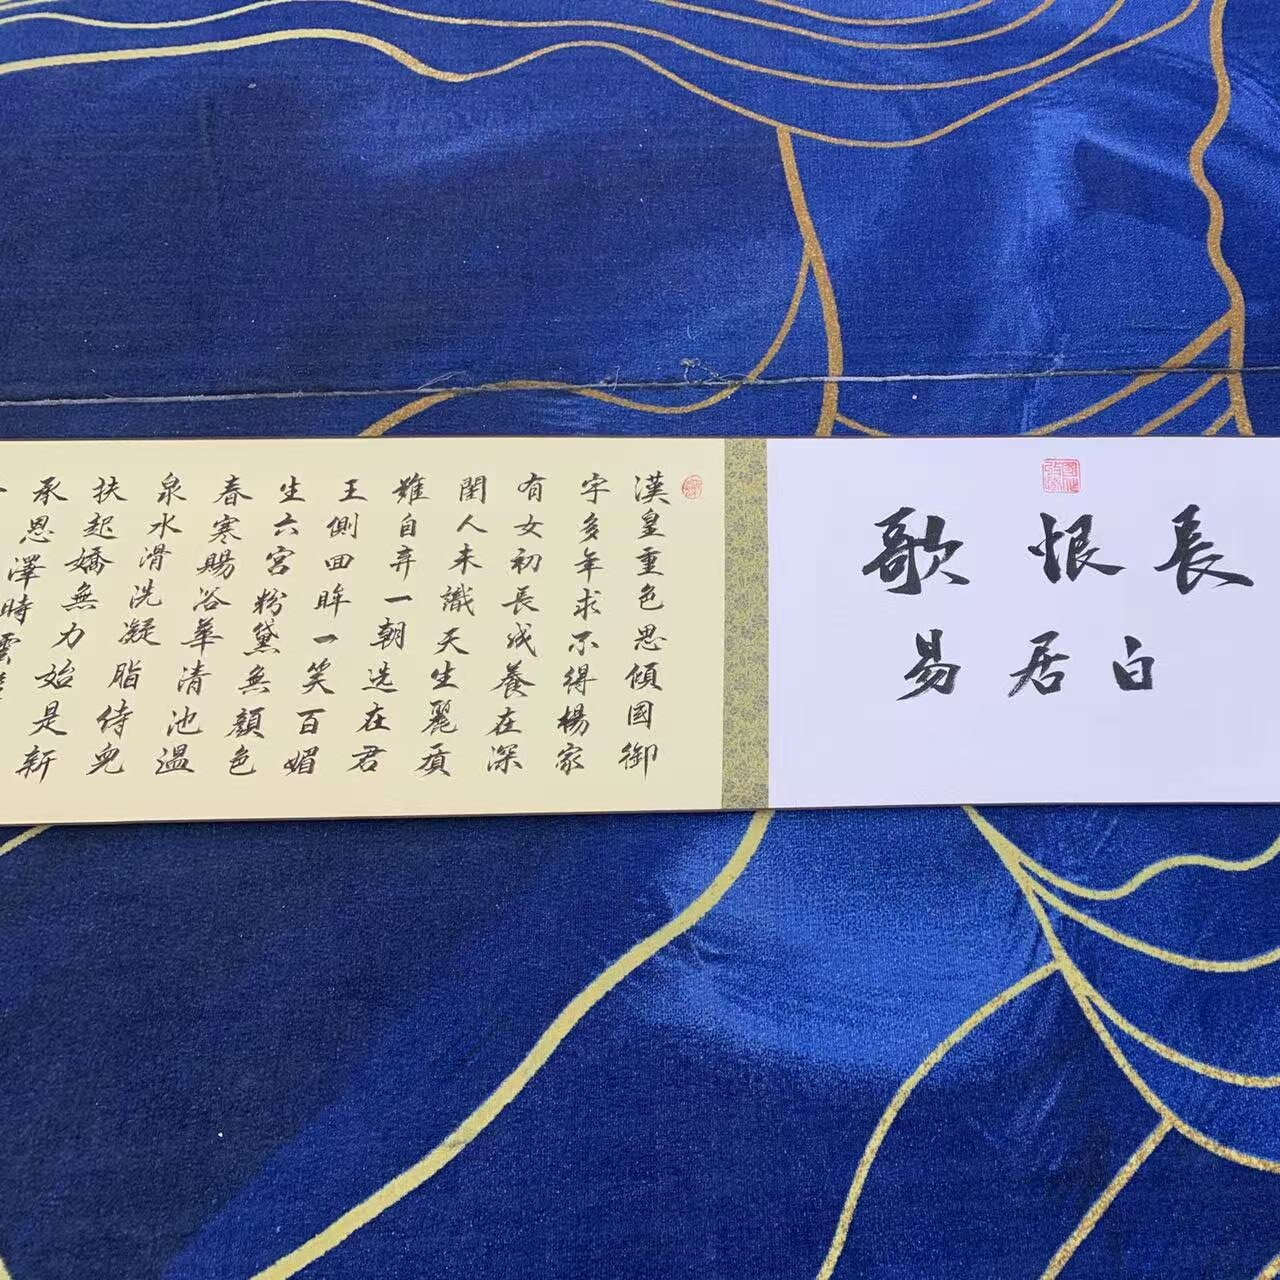 長恨歌
白居易
漢皇重色思傾國御
宇多年求不得楊家
有女初長成養在深
閨人未識天生麗質
難自弃一朝选在君
王側回眸一笑百媚
生六宮粉黛無顏色
春寒賜浴華清池溫
泉水滑洗凝脂侍兒
扶起嬌無力始是新
承恩澤時雲